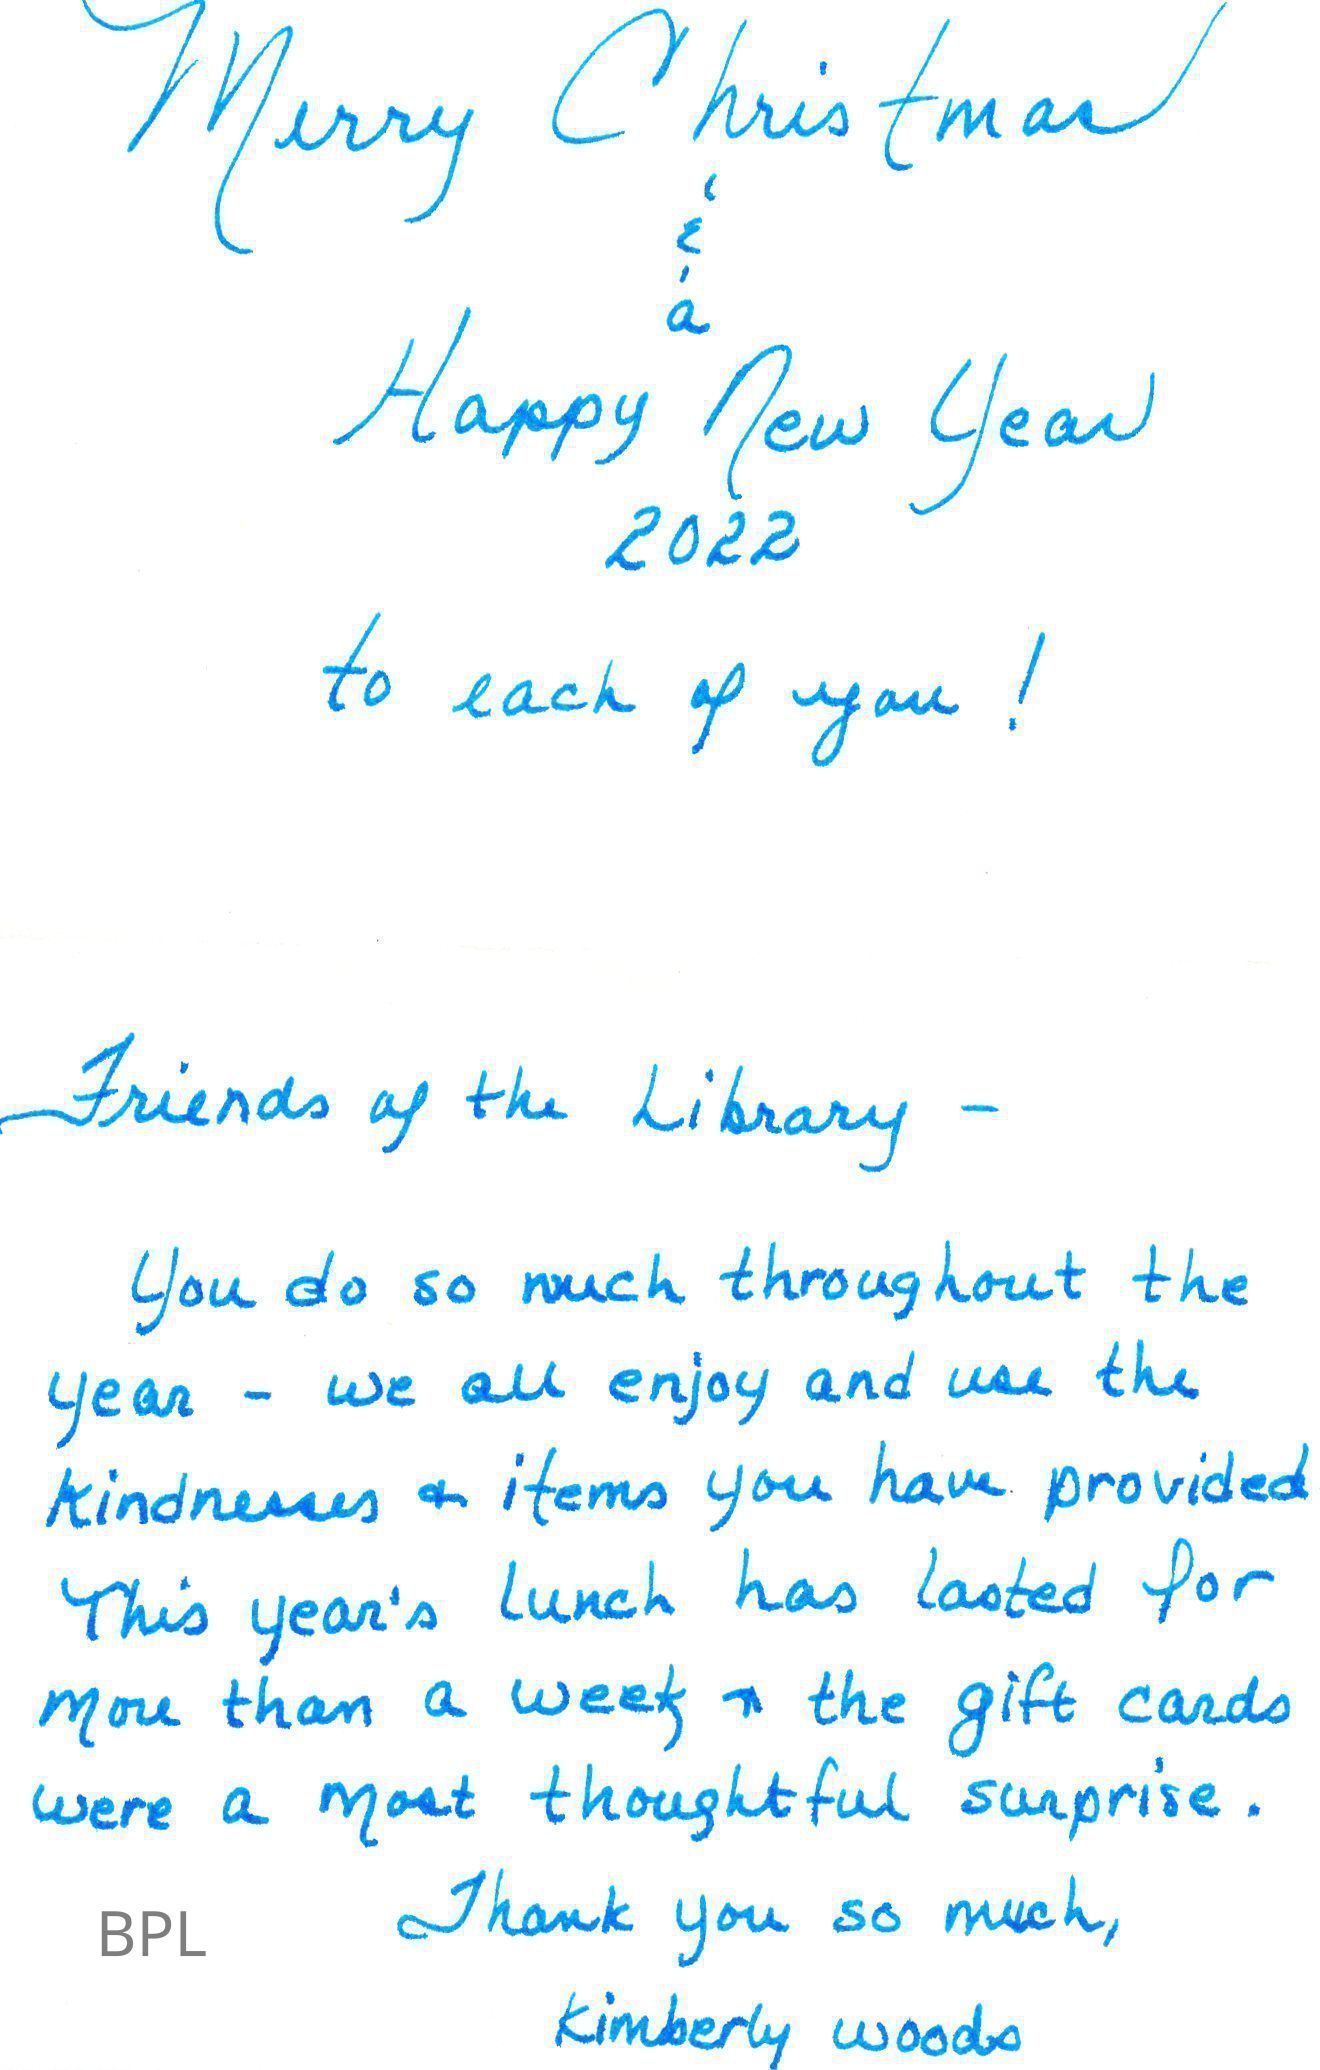 Merry Christmas
&
a
Happy New Year
2022
to each of you!
Friends of the Library -
You do so much throughout the
year - we all enjoy and use the
kindnesses & items you have provided
This year's lunch has lasted for
more than a week & the gift cards
were a most thoughtful surprise.
Thank you so much,
BPL
Kimberly Woods